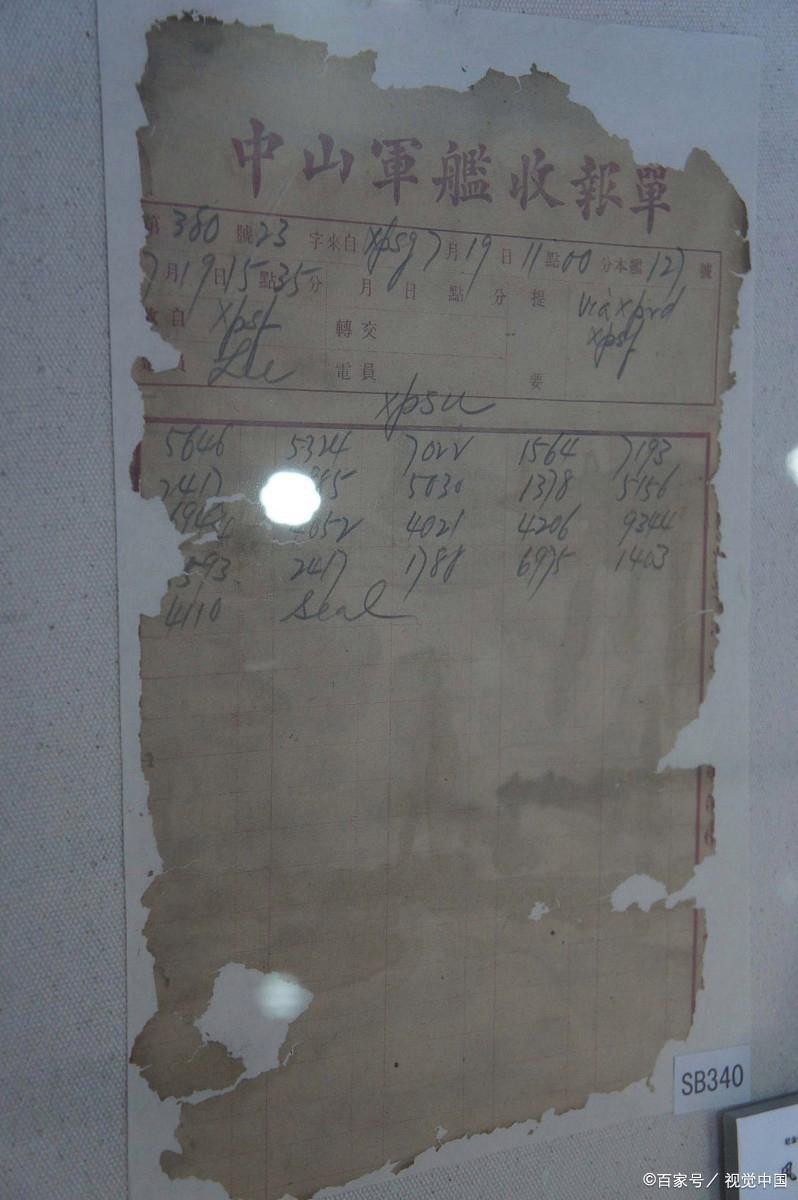 中山軍艦收報單
第 380 號 23 字來自 xpsg 7月19日11點00分本艦127號
7月19日15點35分 月 日 點 分 提 via xprd
收自 xpsf 轉交 xpsf
員 Lee 電員 要
xpsu
5646 5324 7022 1564 7193
2417 5030 1378 5156
4052 4021 4206 9344
593 2417 1788 6975 1403
4110 Seal
SB340
©百家号／视觉中国